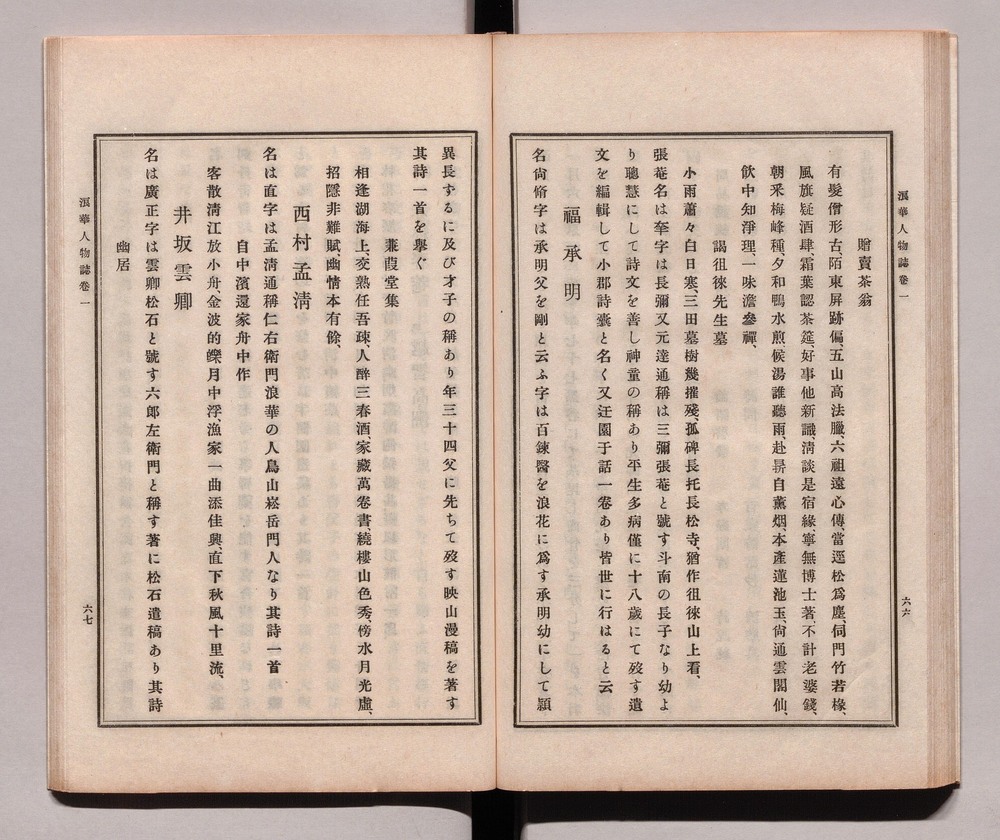 浪華人物誌卷一
六六
贈賣茶翁
有髮僧形古、陌東屏跡偏、五山高法臘、六祖遠心傳、當逕松爲塵、伺門竹若椽、
風旗疑酒肆、霜葉認茶筵、好事他新識、淸談是宿緣、寧無博士著、不計老婆錢、
朝釆梅峰種、夕和鴨水煎、候湯誰聽雨、赴鼻自薰烟、本產蓮池玉、尙通雲閣仙、
飮中知淨理、一味澹參禪、
謁徂徠先生墓
小雨蕭々白日寒、三田墓樹幾摧殘、孤碑長托長松寺、猶作徂徠山上看、
張菴名は奎字は長彌又元達通稱は三彌張菴と號す斗南の長子なり幼よ
り聰慧にして詩文を善し神童の稱あり平生多病僅に十八歲にて歿す遺
文を編輯して小郡詩囊と名く又迂園于話一卷あり皆世に行はると云
福承明
名尙脩字は承明父を剛と云ふ字は百鍊醫を浪花に爲す承明幼にして穎
異長するに及び才子の稱あり年三十四父に先ちて歿す映山漫稿を著す
其詩一首を擧ぐ
蒹葭堂集
相逢湖海上、交熟任吾疎、人醉三春酒、家藏萬卷書、繞樓山色秀、傍水月光虛、
招隱非難賦、幽情本有餘、
西村孟淸
名は直字は孟淸通稱仁右衛門浪華の人鳥山崧岳門人なり其詩一首
自中濱還家舟中作
客散淸江放小舟、金波的皪月中浮、漁家一曲添佳興、直下秋風十里流、
井坂雲卿
名は廣正字は雲卿松石と號す六郎左衛門と稱す著に松石遣稿あり其詩
幽居
浪華人物誌卷一
六七